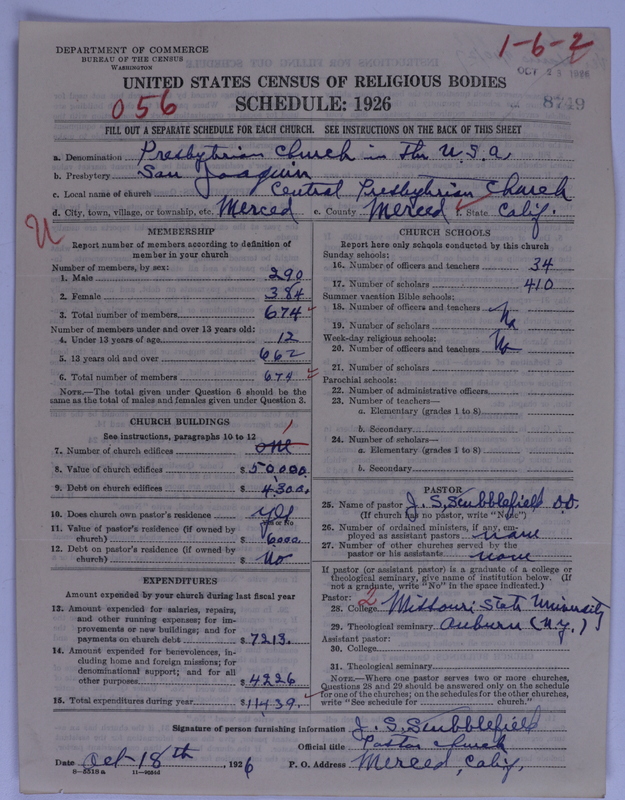 DEPARTMENT OF COMMERCE
BUREAU OF THE CENSUS
WASHINGTON
1-6-2
OCT 23 1926
8749
UNITED STATES CENSUS OF RELIGIOUS BODIES
SCHEDULE: 1926
056
FILL OUT A SEPARATE SCHEDULE FOR EACH CHURCH. SEE INSTRUCTIONS ON THE BACK OF THIS SHEET
a. Denomination Presbytrian Church in the U.S.A.
b. Presbytery San Joaquin
c. Local name of church Central Presbytrian Church
d. City, town, village, or township, etc. Merced e. County Merced f. State Calif.
U
MEMBERSHIP
Report number of members according to definition of
member in your church
Number of members, by sex:
1. Male 290
2. Female 384
3. Total number of members 674
Number of members under and over 13 years old:
4. Under 13 years of age 12
5. 13 years old and over 662
6. Total number of members 674
NOTE.—The total given under Question 6 should be the
same as the total of males and females given under Question 3.
CHURCH BUILDINGS
See instructions, paragraphs 10 to 12
7. Number of church edifices one 1
8. Value of church edifices $ 50,000.
9. Debt on church edifices $ 4,300.
10. Does church own pastor's residence yes
Yes or No
11. Value of pastor's residence (if owned by
church) $ 6000.
12. Debt on pastor's residence (if owned by
church) $ No
EXPENDITURES
Amount expended by your church during last fiscal year
13. Amount expended for salaries, repairs,
and other running expenses; for im-
provements or new buildings; and for
payments on church debt $ 7213.
14. Amount expended for benevolences, in-
cluding home and foreign missions; for
denominational support; and for all
other purposes $ 4226
15. Total expenditures during year $ 11439.
CHURCH SCHOOLS
Report here only schools conducted by this church
Sunday schools:
16. Number of officers and teachers 34
17. Number of scholars 410
Summer vacation Bible schools:
18. Number of officers and teachers No
19. Number of scholars
Week-day religious schools:
20. Number of officers and teachers No
21. Number of scholars
Parochial schools:
22. Number of administrative officers
23. Number of teachers—
a. Elementary (grades 1 to 8)
b. Secondary
24. Number of scholars—
a. Elementary (grades 1 to 8)
b. Secondary
PASTOR
25. Name of pastor J. S. Stubblefield D.D.
(If church has no pastor, write "None")
26. Number of ordained ministers, if any, em-
ployed as assistant pastors none
27. Number of other churches served by the
pastor or his assistants none
If pastor (or assistant pastor) is a graduate of a college or
theological seminary, give name of institution below. (If
not a graduate, write "No" in the space indicated.)
Pastor: 2
28. College Missouri State University
29. Theological seminary Auburn (N.Y.)
Assistant pastor:
30. College
31. Theological seminary
NOTE.—Where one pastor serves two or more churches,
Questions 28 and 29 should be answered only on the schedule
for one of the churches; on the schedules for the other churches,
write "See schedule for church."
Signature of person furnishing information J. S. Stubblefield
Official title Pastor Church
Date Oct-18th, 1926 P. O. Address Merced, Calif.
8-5518a 11-9051d